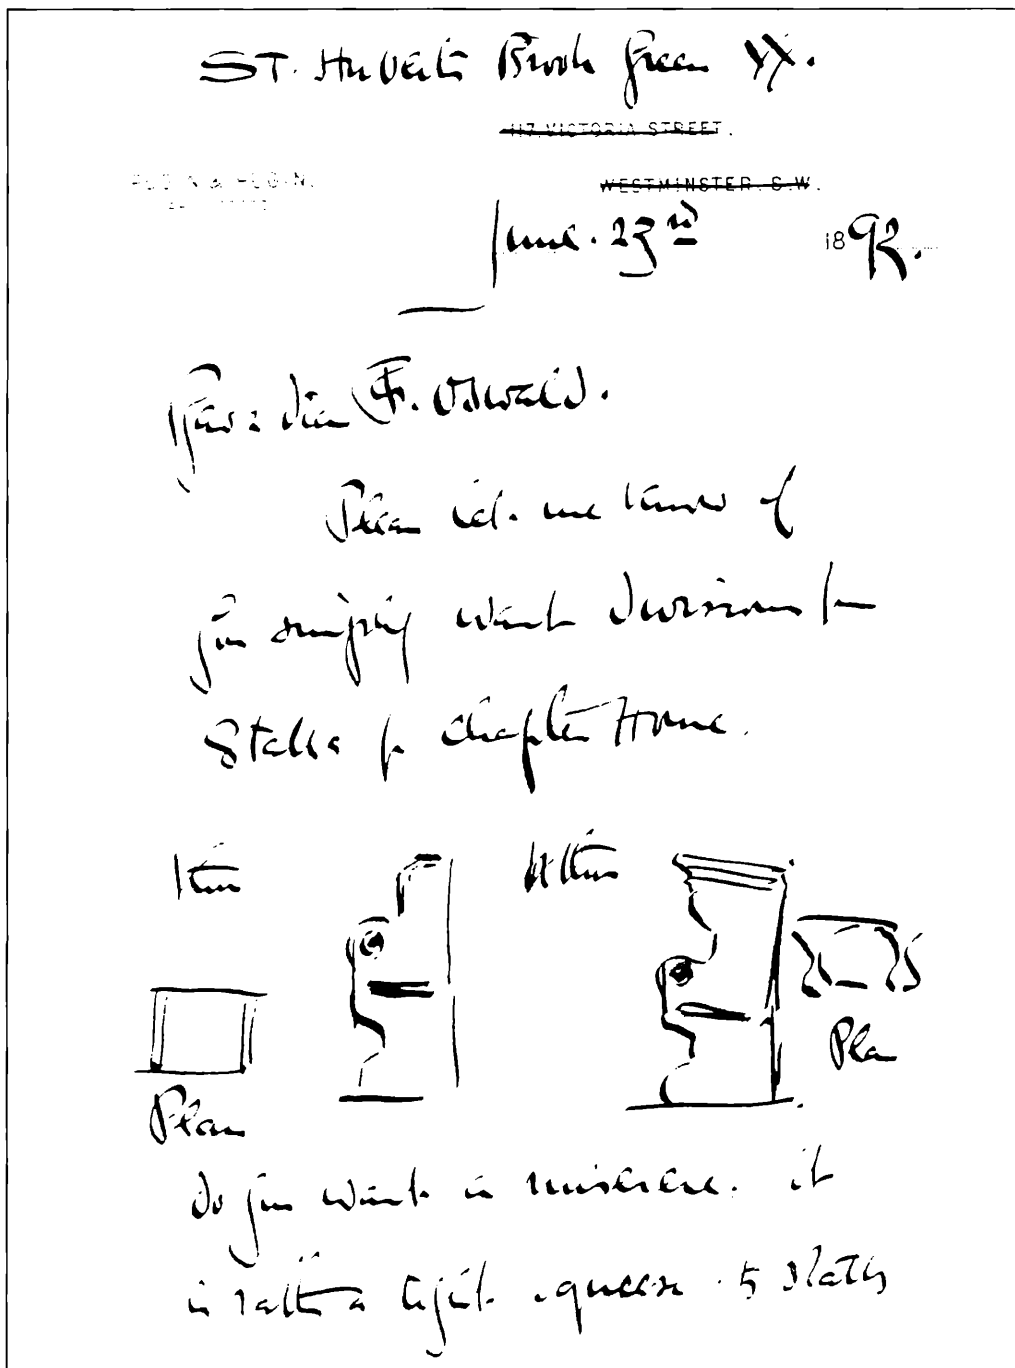 ST. Huberts Brook Green W.
117, VICTORIA STREET.
PUGIN & PUGIN.
WESTMINSTER. S.W.
June. 23rd 1892.
Dear Sir F. Oswald.
Please let me know if
you simply want divisions for
Stalls for chapter House.
thus
Plan
Plan
do you want a miserere. it
is rather a tight squeeze. 5 stalls